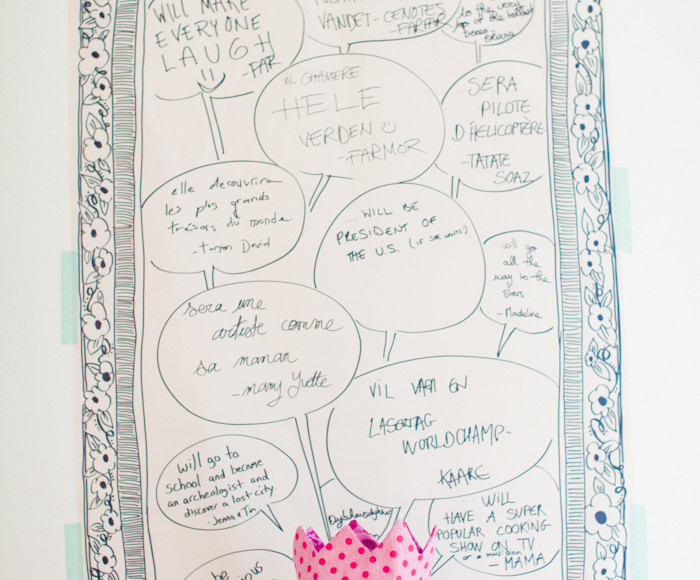 WILL MAKE
EVERYONE
LAUGH
-FAR
VANDET-CENOTES
-FARFAR
to the very
top of the
VIL CHARMERE
HELE
VERDEN
-FARMOR
SERA
PILOTE
D'HELICOPTÈRE
-TATATE
SOAZ
elle decouvrira
les plus grands
trésors du monde
-tonton David
... WILL BE
PRESIDENT OF
THE U.S. (IF SHE WANTS)
will go
all the
way to the
stars
-Madeline
sera une
artiste comme
sa maman
-mamy Yvette
VIL VÆRE EN
LASERTAG
WORLDCHAMP-
KAARE
will go to
school and become
an archeologist and
discover a lost city
-Jenna & Tim
... WILL
HAVE A SUPER
POPULAR COOKING
SHOW ON TV
-MAMA
be